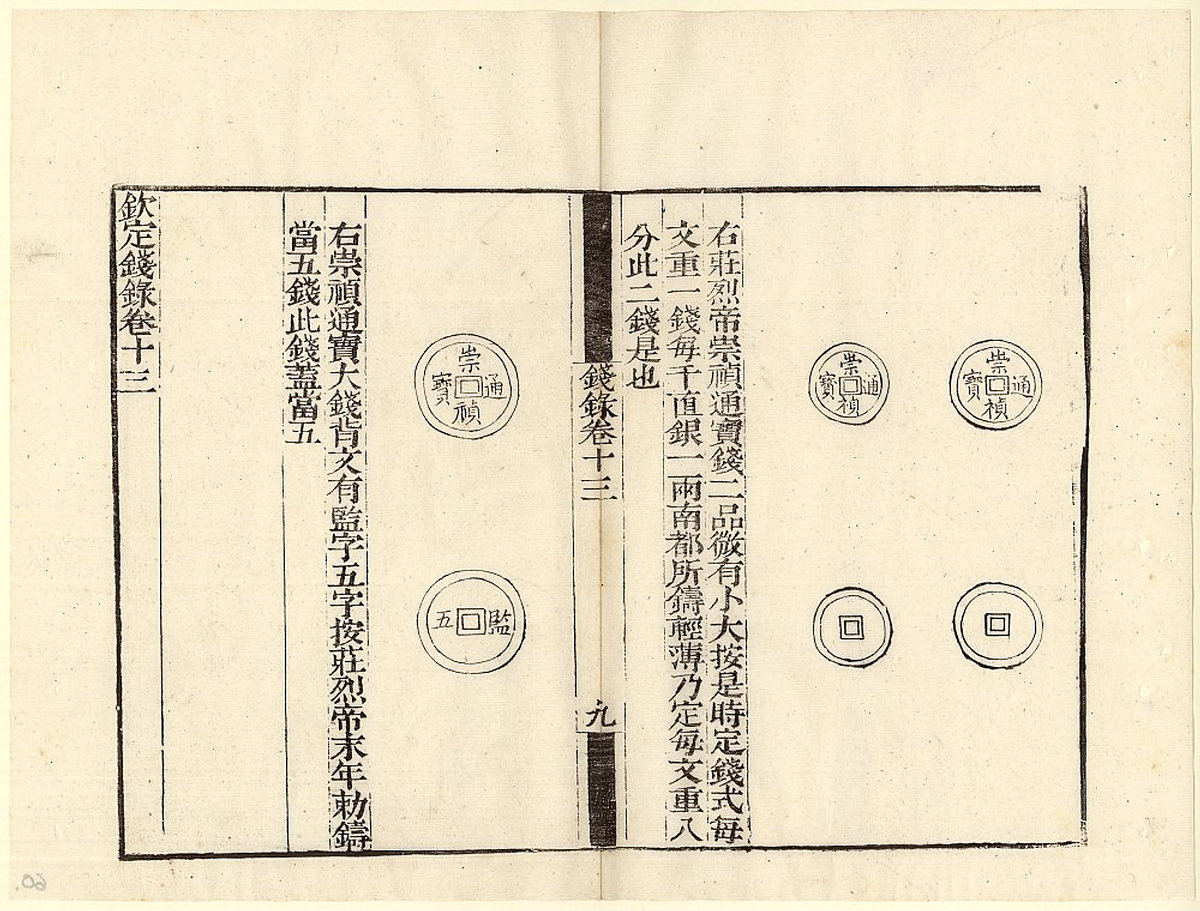 崇禎通寶
崇禎通寶
右莊烈帝崇禎通寶錢二品微有小大按是時定錢式每
文重一錢每千直銀一兩南都所鑄輕薄乃定每文重八
分此二錢是也
錢錄卷十三
九
崇禎通寶
監五
右崇禎通寶大錢背文有監字五字按莊烈帝末年勅鑄
當五錢此錢蓋當五
欽定錢錄卷十三
60.